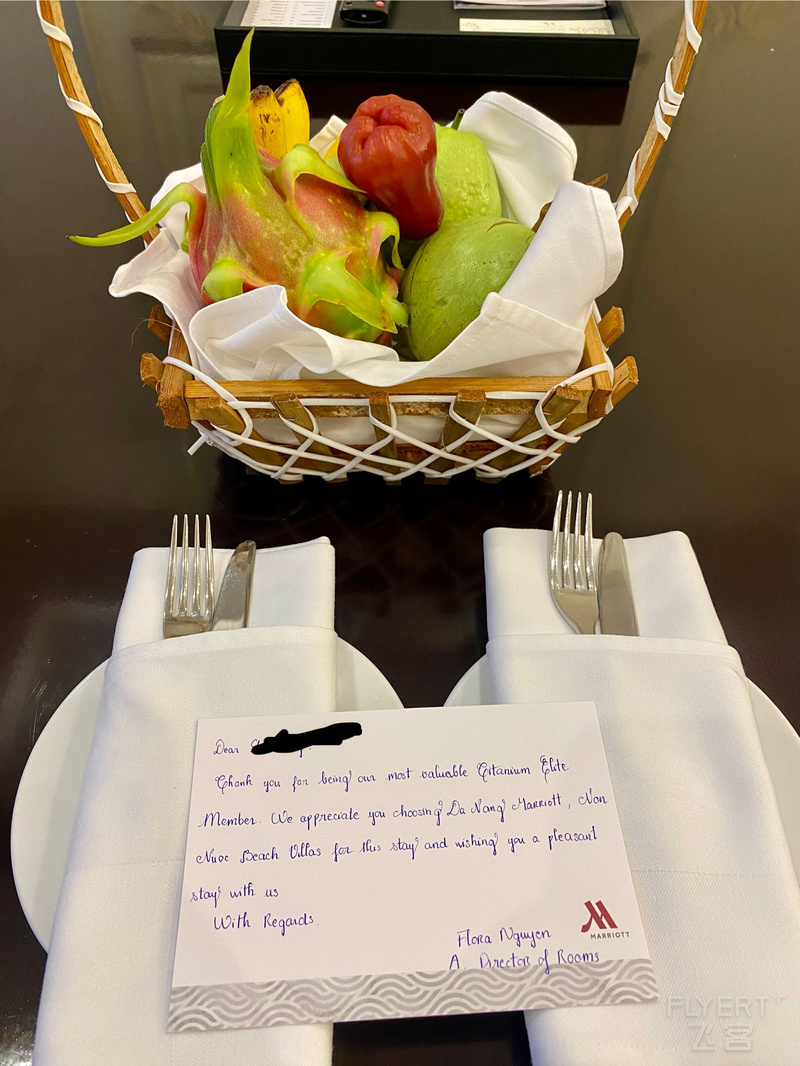 Dear
Thank you for being our most valuable Titanium Elite
Member. We appreciate you choosing Da Nang Marriott, Non
Nuoc Beach Villas for this stay and wishing you a pleasant
stay with us
With Regards.
Flora Nguyen
A. Director of Rooms
MARRIOTT
FLYERT
飞客